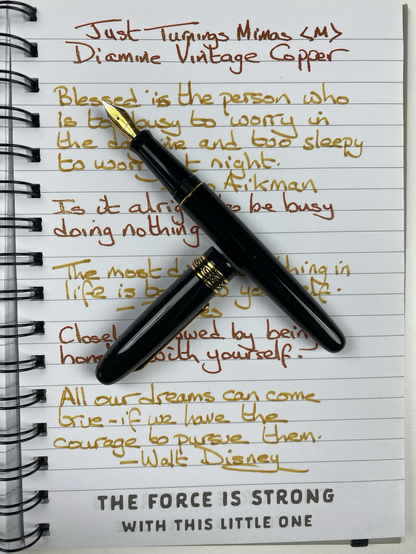 Just Turnings Mimas <M>
Diamine Vintage Copper
Blessed is the person who
is too busy to worry in
the and too sleepy
to worry at night.
Aikman
Is it alright to be busy
doing nothing
The most thing in
life is yourself.
Closely followed by being
honest with yourself.
All our dreams can come
true - if we have the
courage to pursue them.
- Walt Disney
THE FORCE IS STRONG
WITH THIS LITTLE ONE